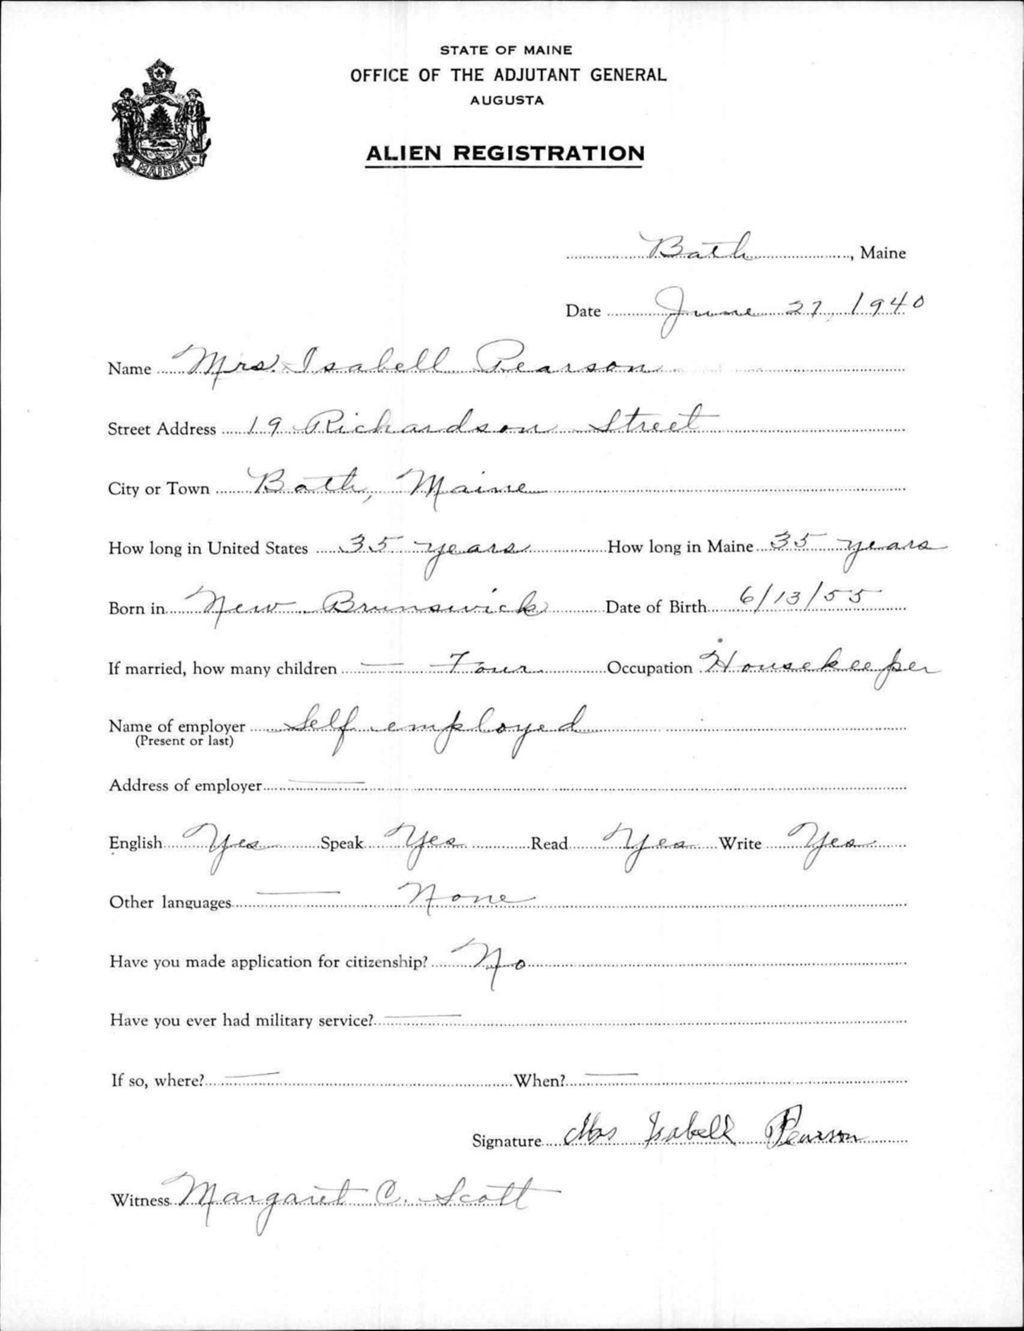 STATE OF MAINE
OFFICE OF THE ADJUTANT GENERAL
AUGUSTA
ALIEN REGISTRATION
MAINE
Bath, Maine
Date June 27, 1940
Name Mrs. Isabell Pearson
Street Address 19 Richardson Street
City or Town Bath, Maine
How long in United States 35 years How long in Maine 35 years
Born in New Brunswick Date of Birth 6/13/55
If married, how many children — Four Occupation Housekeeper
Name of employer Self employed
(Present or last)
Address of employer —
English Yes Speak Yes Read Yes Write Yes
Other languages — None
Have you made application for citizenship? No
Have you ever had military service? —
If so, where? — When? —
Signature Mrs Isabell Pearson
Witness Margaret C. Scott